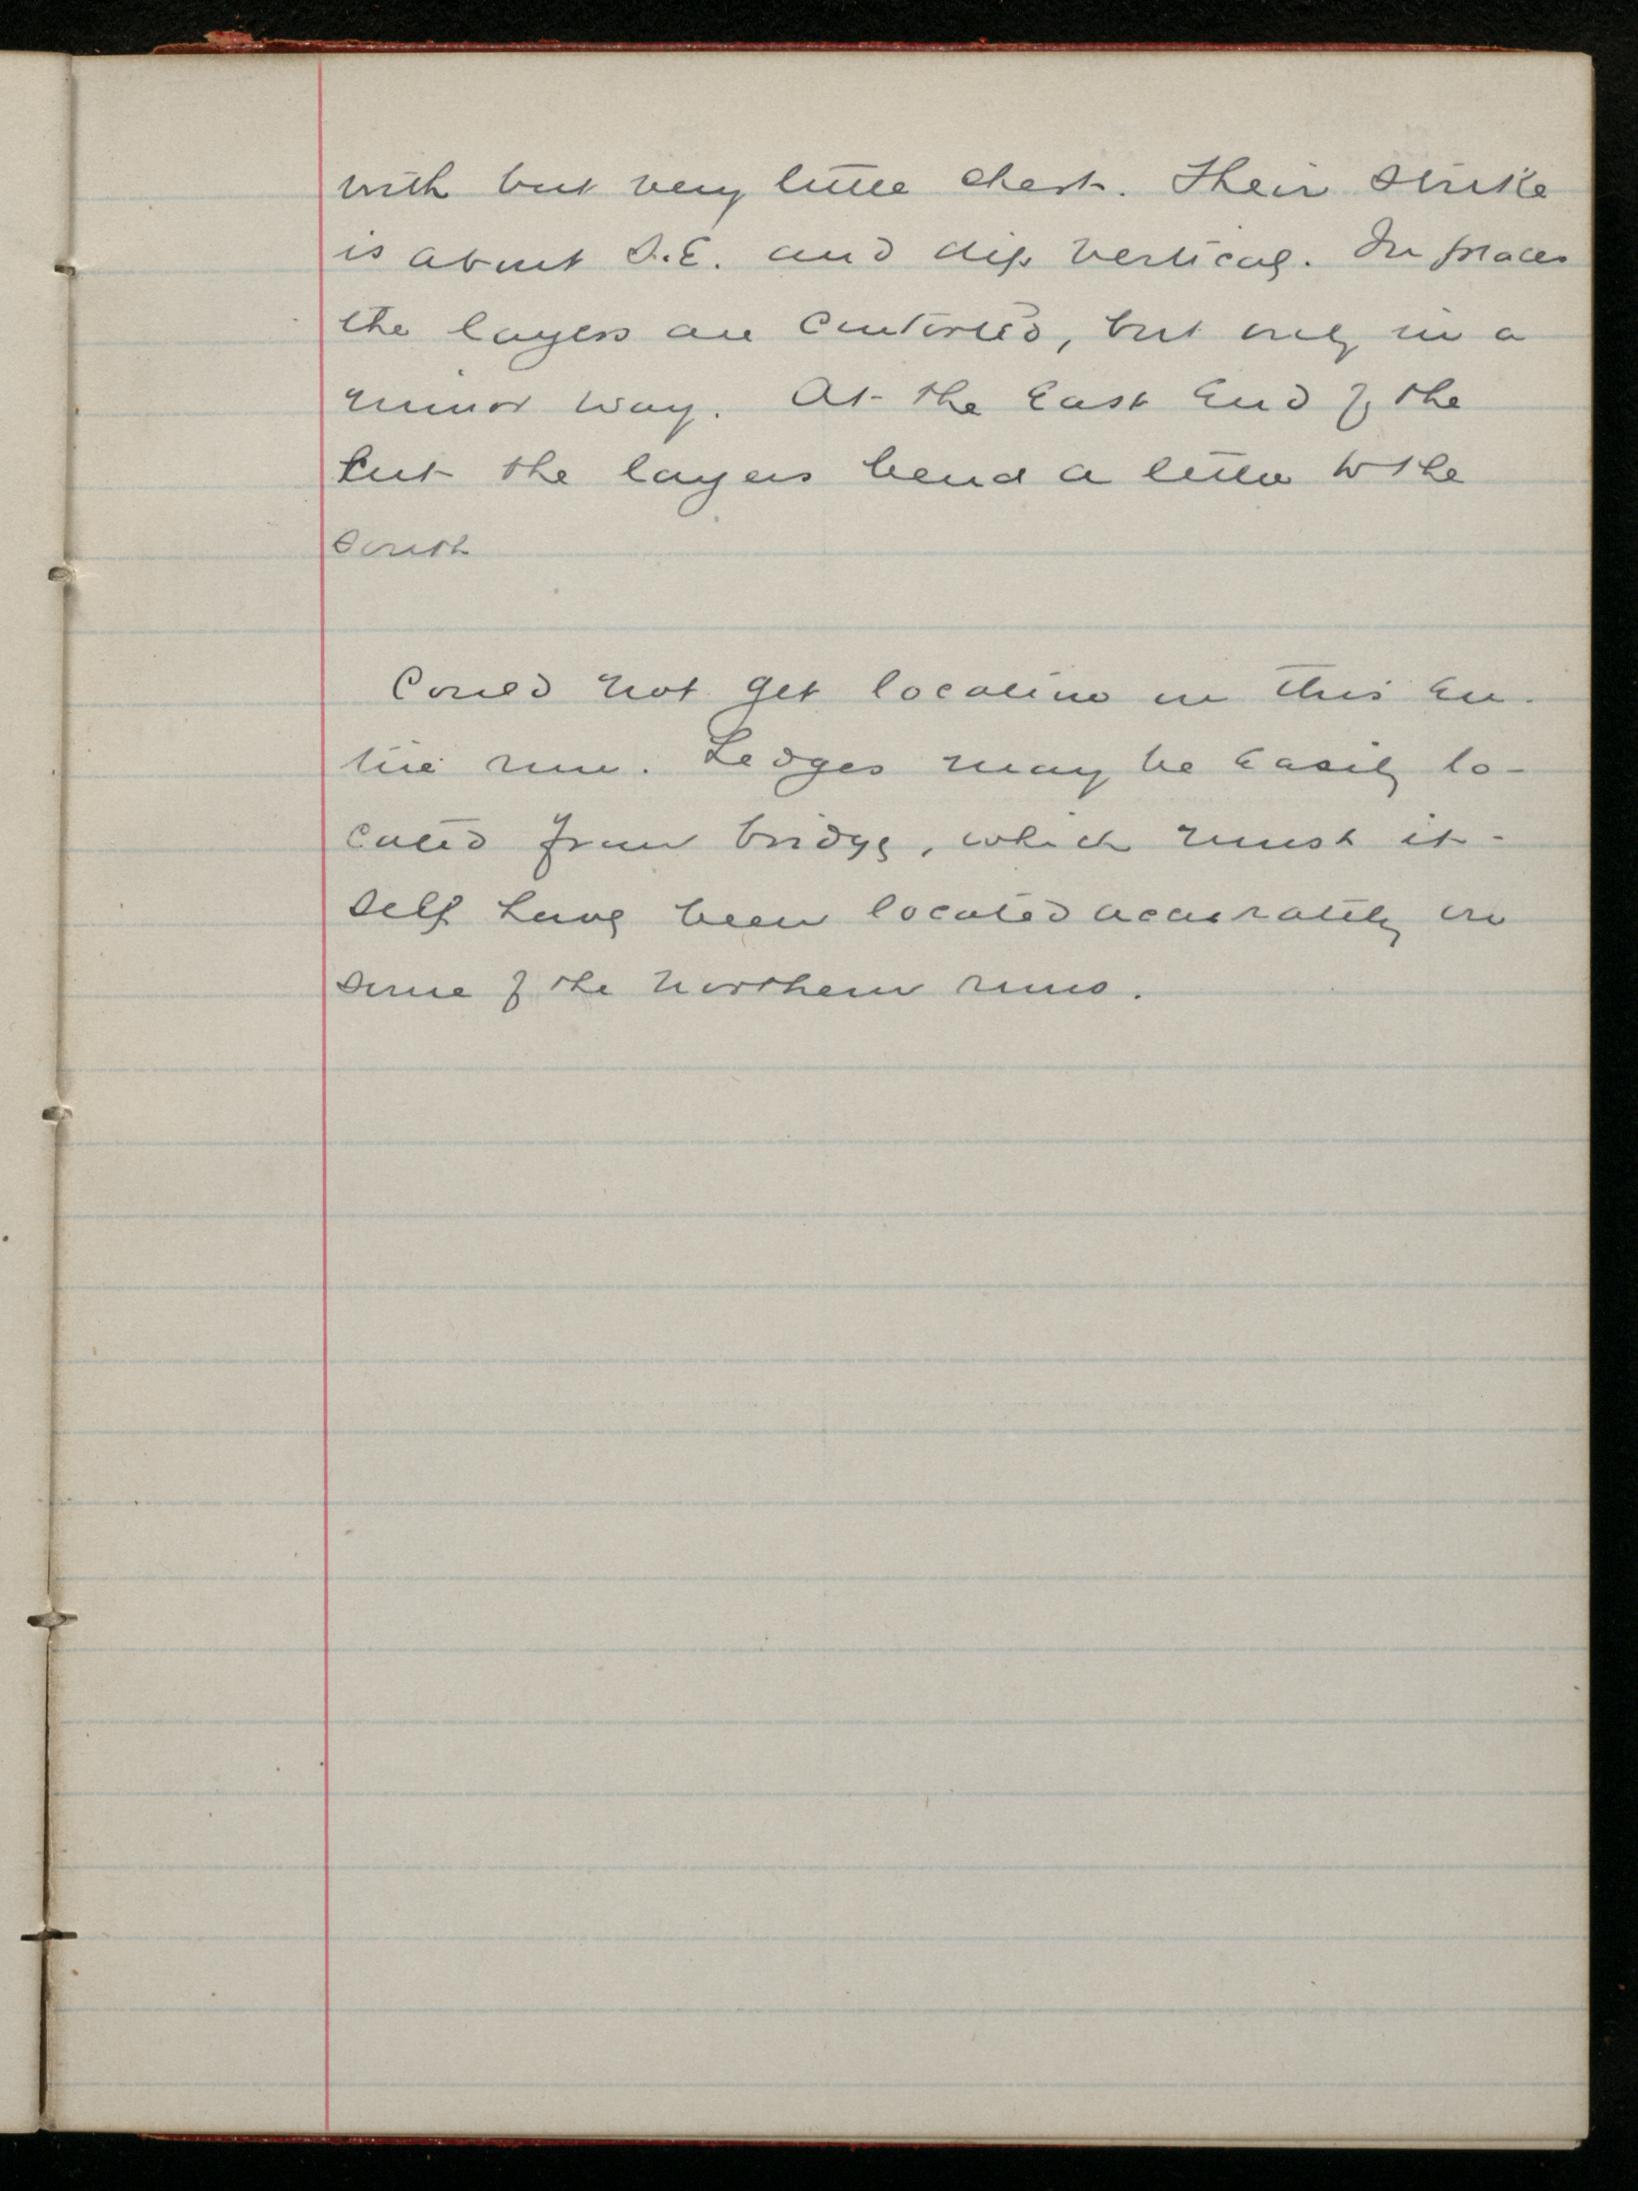 with but very little chert. Their strike
is about S.E. and dip vertical. In places
the layers are contorted, but only in a
minor way. At the East End of the
cut the layers bend a little to the
South
Could not get location in this en-
tire run. Ledges may be easily lo-
cated from bridge, which must it-
self have been located accurately on
some of the northern runs.